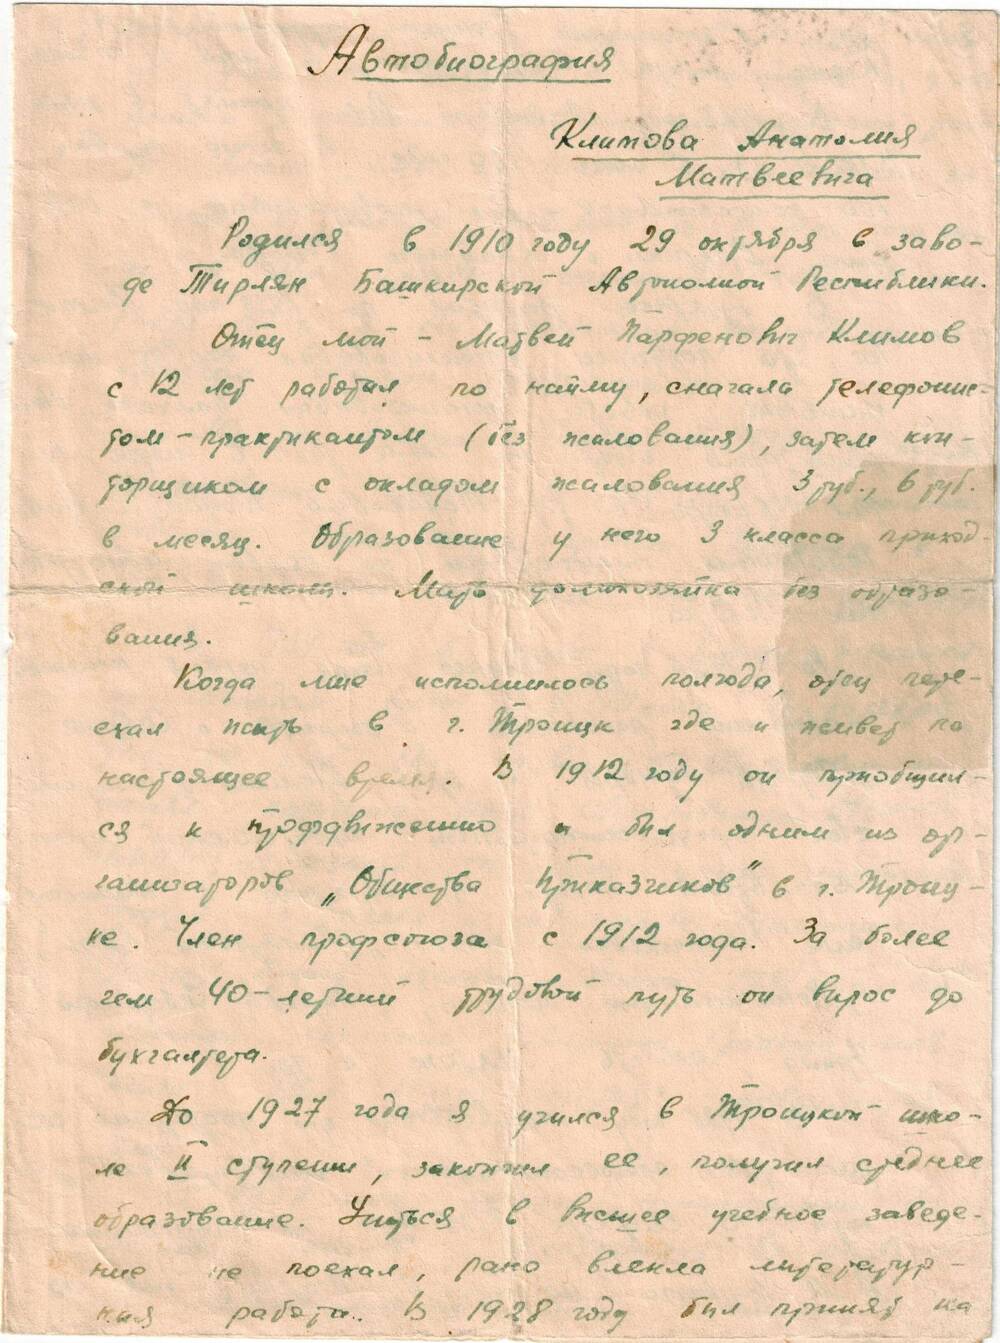 Автобиография
Климова Анатолия
Матвеевича
Родился в 1910 году 29 октября в заво-
де Тирлян Башкирской Автономной Республики.
Отец мой - Матвей Парфенович Климов
с 12 лет работал по найму, сначала телефонис-
том-практикантом (без жалования), затем кон-
торщиком с окладом жалования 3 руб., 6 руб.
в месяц. Образование у него 3 класса приход-
ской школы. Мать домохозяйка без образо-
вания.
Когда мне исполнилось полгода, отец пере-
ехал жить в г. Троицк где и живет по
настоящее время. В 1912 году он приобщил-
ся к профдвижению и был одним из ор-
ганизаторов „Общества Приказчиков" в г. Троиц-
ке. Член профсоюза с 1912 года. За более
чем 40-летний трудовой путь он вырос до
бухгалтера.
До 1927 года я учился в Троицкой шко-
ле II ступени, закончил ее, получил среднее
образование. Учиться в высшее учебное заведе-
ние не поехал, рано влекла литератур-
ная работа. В 1928 году был принят на